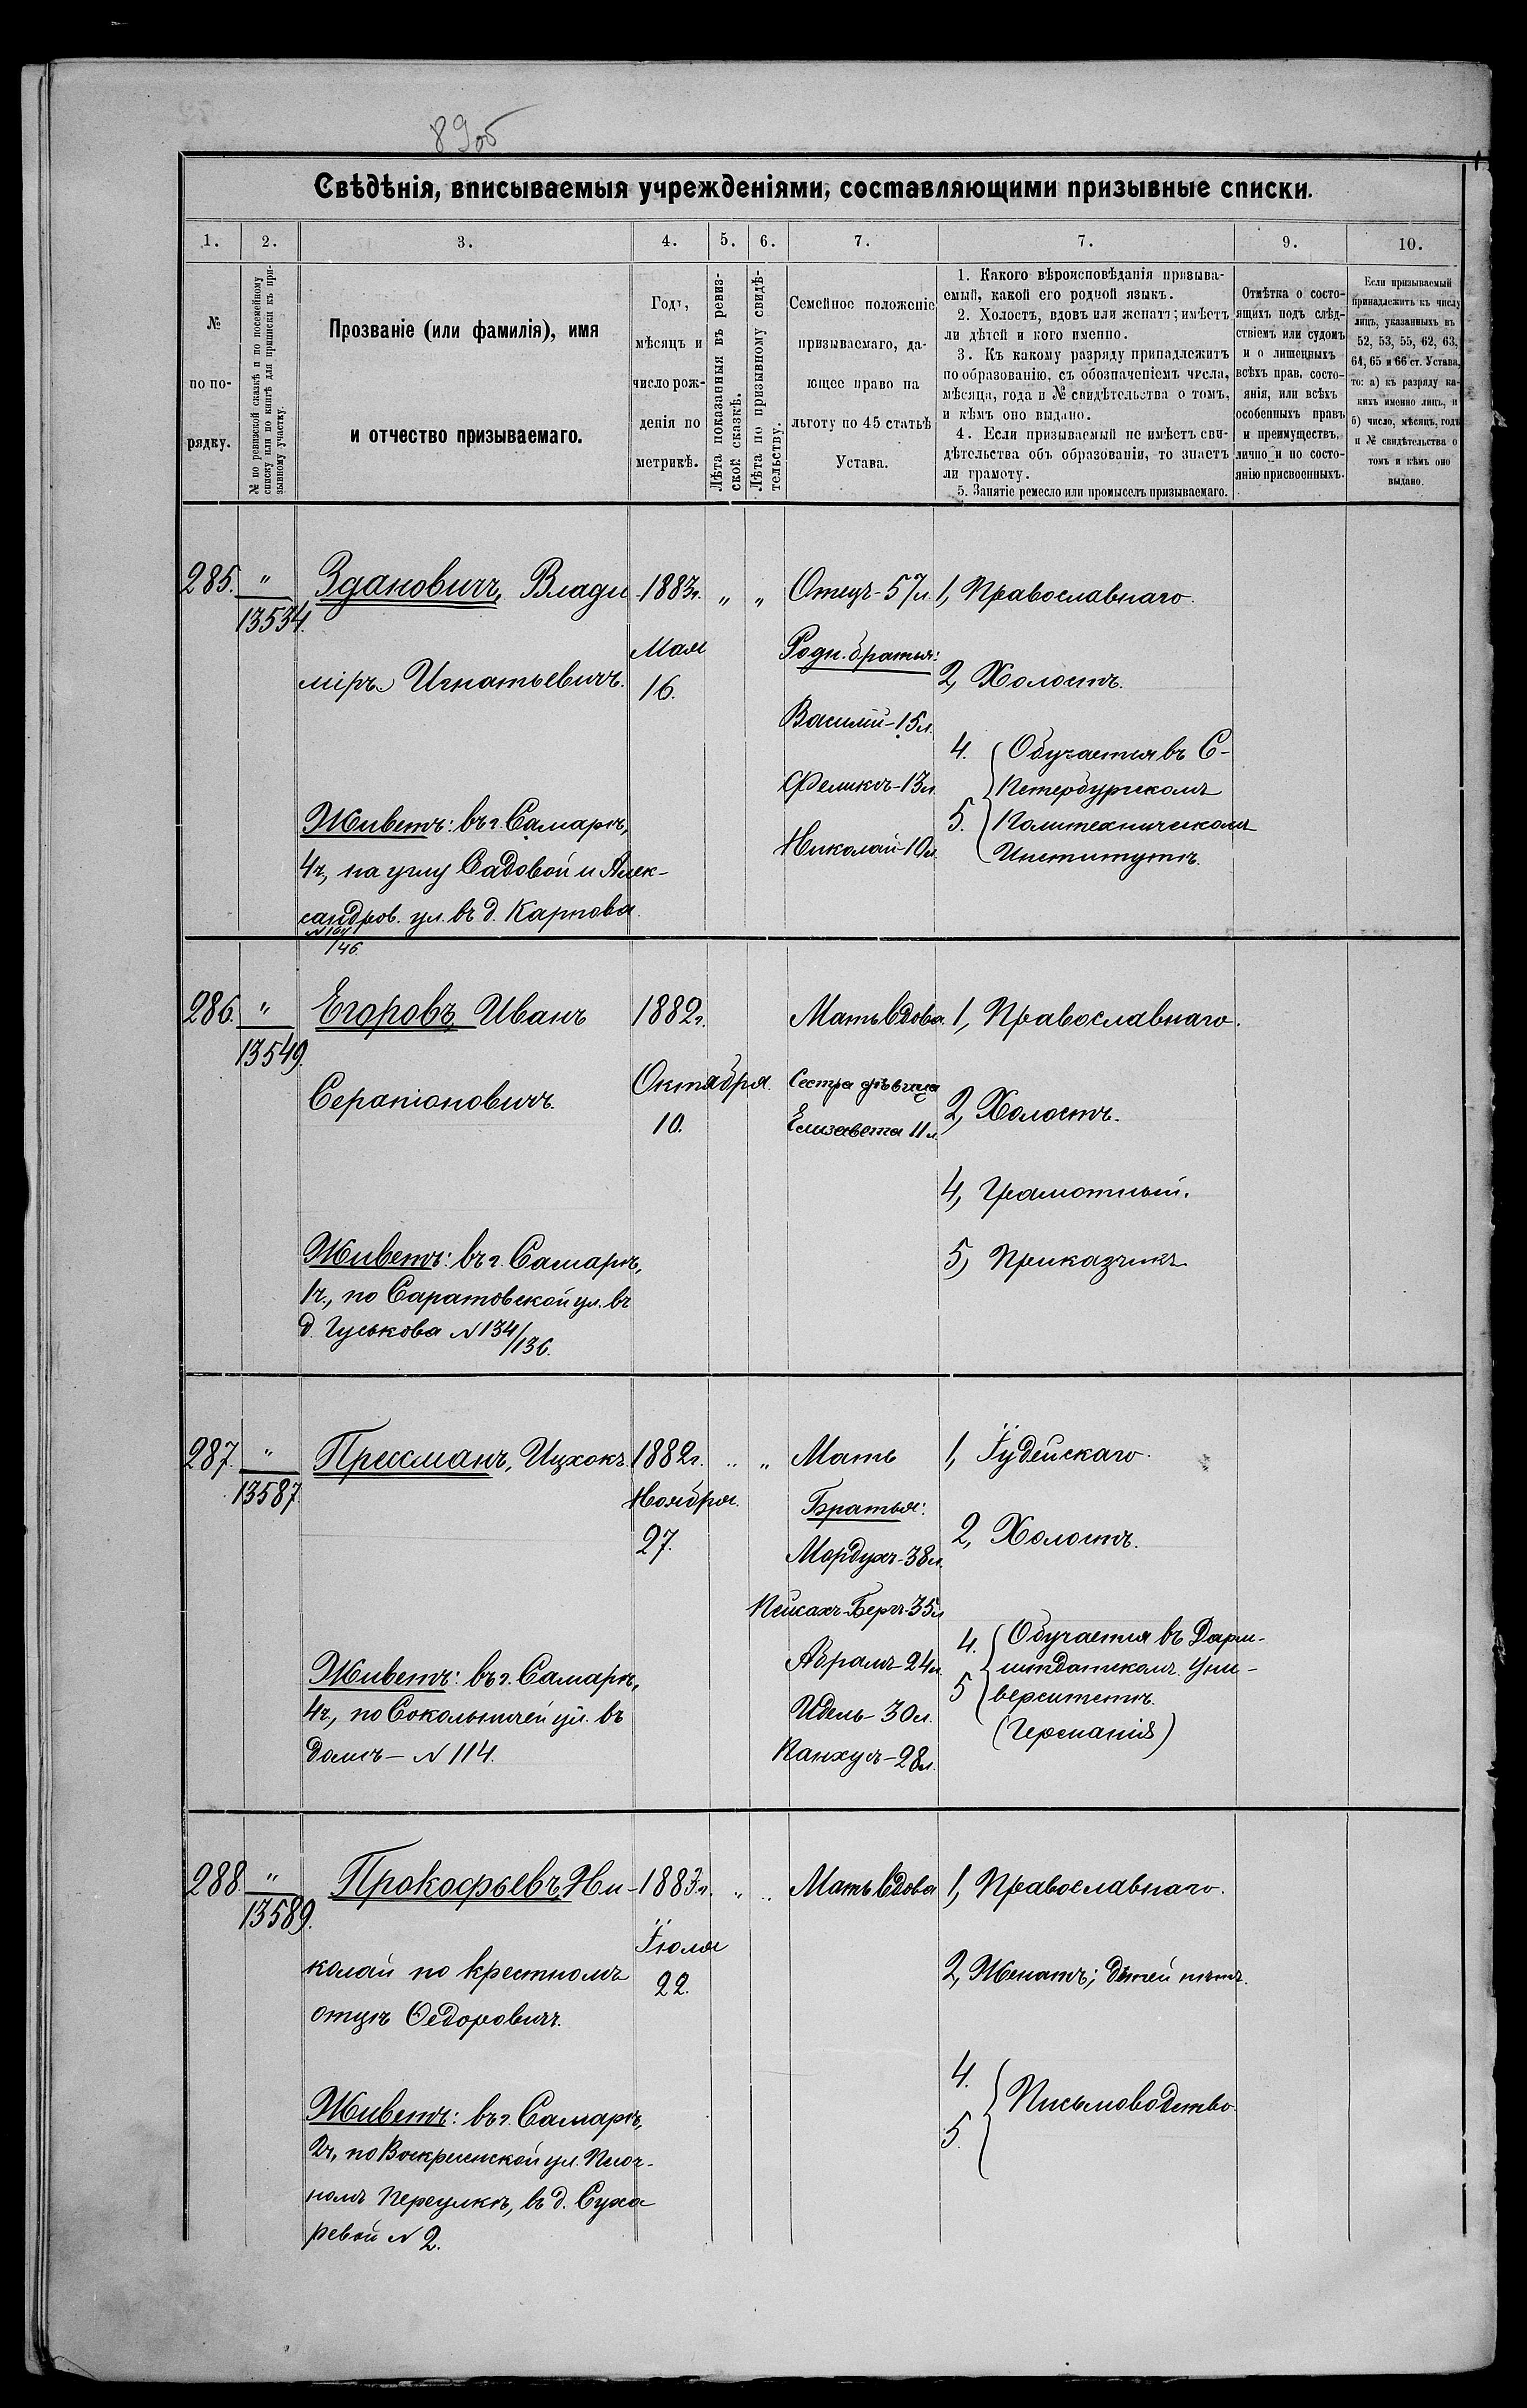 89об
Свѣдѣнія, вписываемыя учрежденіями, составляющими призывные списки.
1. 2. 3. 4. 5. 6. 7. 7. 9. 10.
№
по по-
рядку.
№ по ревизской сказкѣ и по посемейному
списку или по книгѣ для приписки къ при-
зывному участку.
Прозваніе (или фамилія), имя
и отчество призываемаго.
Годъ,
мѣсяцъ и
число рож-
денія по
метрикѣ.
Лѣта показанныя въ ревиз-
ской сказкѣ.
Лѣта по призывному свидѣ-
тельству.
Семейное положеніе
призываемаго, да-
ющее право на
льготу по 45 статьѣ
Устава.
1. Какого вѣроисповѣданія призыва-
емый, какой его родной языкъ.
2. Холостъ, вдовъ или женатъ; имѣетъ
ли дѣтей и кого именно.
3. Къ какому разряду принадлежитъ
по образованію, съ обозначеніемъ числа,
мѣсяца, года и № свидѣтельства о томъ,
и кѣмъ оно выдано.
4. Если призываемый не имѣетъ сви-
дѣтельства объ образованіи, то знаетъ
ли грамоту.
5. Занятіе ремесло или промыселъ призываемаго.
Отмѣтка о состо-
ящихъ подъ слѣд-
ствіемъ или судомъ
и о лишенныхъ
всѣхъ правъ, состо-
янія, или всѣхъ
особенныхъ правъ
и преимуществъ,
лично и по состо-
янію присвоенныхъ.
Если призываемый
принадлежитъ къ числу
лицъ, указанныхъ въ
52, 53, 55, 62, 63,
64, 65 и 66 ст. Устава,
то: а) къ разряду ка-
кихъ именно лицъ, и
б) число, мѣсяцъ, годъ
и № свидѣтельства о
томъ и кѣмъ оно
выдано.
285. "
13534.
Здановичъ, Влади
міръ Игнатьевичъ.
Живетъ: въ г. Самарѣ,
4ч, на углу Садовой и Алек-
сандров. ул. въ д. Карпова
146.
1883г. " "
Мая
16.
Отецъ-57л.
Родн. братья:
Василій-15л.
Феликсъ-13л.
Николай-10л.
1, Православнаго.
2, Холостъ.
4. Обучается въ С-
Петербургскомъ
5. Политехническомъ
Институтѣ.
286. "
13549.
Егоровъ, Иванъ
Серапіоновичъ.
Живетъ: въ г. Самарѣ,
1ч., по Саратовской ул. въ
д. Гуськова № 134/136.
1882г.
Октября.
10.
Мать вдова.
Сестра дѣвица
Елизавета 11л.
1, Православнаго.
2, Холостъ.
4, Грамотный.
5, Приказчикъ
287. "
13587.
Прессманъ, Ицхокъ.
Живетъ: въ г. Самарѣ,
4ч., по Сокольничей ул. въ
домѣ- № 114.
1882г. " "
Ноября.
27.
Мать
Братья:
Мордухъ-38л.
Пейсахъ-Беръ-35л
Абрамъ-24л.
Идель-30л.
Панхусъ-28л.
1, Іудейскаго.
2, Холостъ.
4. Обучается въ Дарм-
штдатскомъ Уни-
5 верситетѣ.
(Германія)
288. "
13589.
Прокофьевъ, Ни-
колай по крестному
отцу Ѳедоровичъ.
Живетъ: въ г. Самарѣ,
2ч, по Воскресенской ул.
переулкѣ, въ д. Суха
ревой № 2.
1883г. " "
Іюля
22.
Мать вдова
1, Православнаго.
2, Женатъ; дѣтей нѣтъ.
4.
Письмоводство.
5.